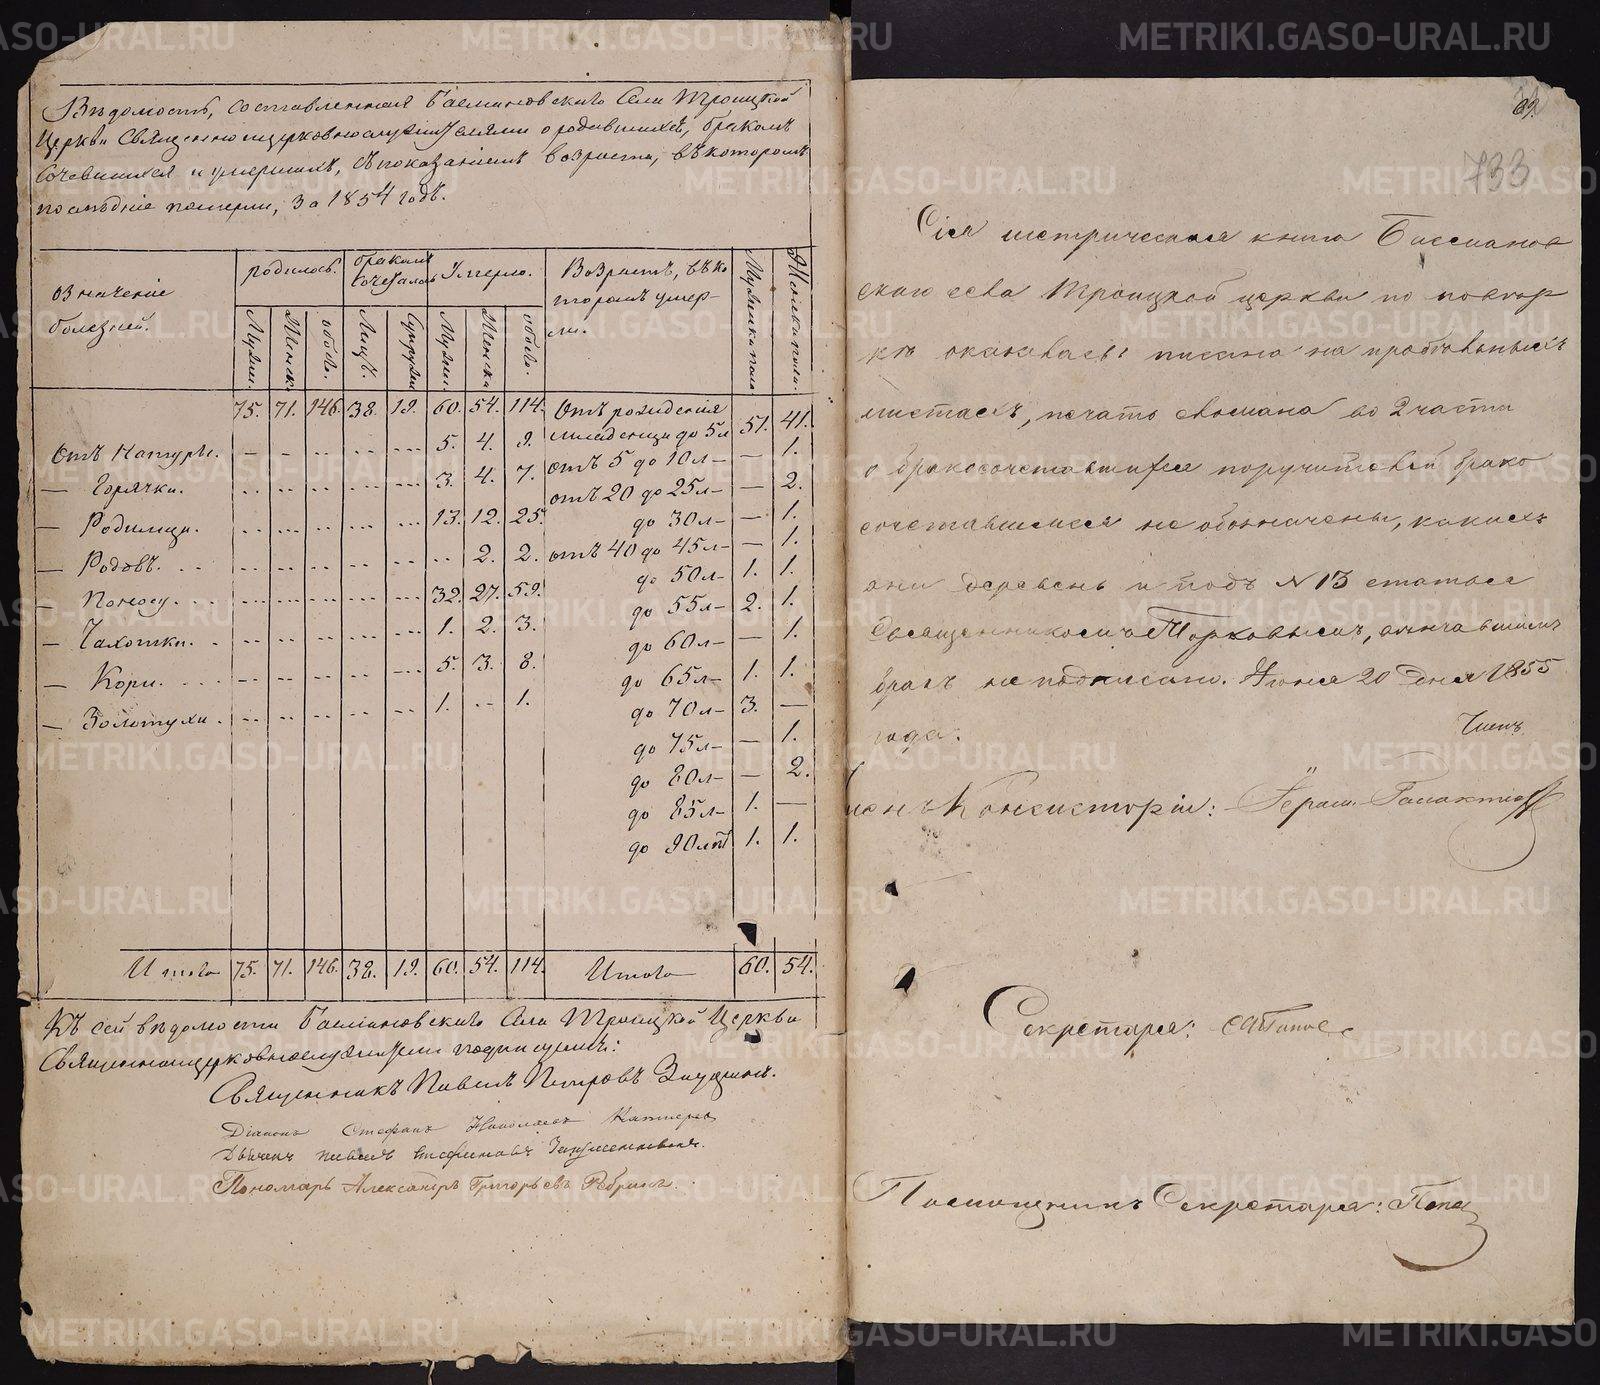 Вѣдомость, составленная Басмановскаго Села Троицкой
Церкви Священноцерковнослужителями о родившихся, бракомъ
сочевшихся и умершихъ, съ показаніемъ возраста, въ которомъ
послѣдніе померли, за 1854 годъ.
означеніе болезней.
родилось.
бракомъ сочеталось
Умерло.
Возрастъ, въ ко
торомъ умер-
ли.
Мужска пола
Женска пола.
Мужск.
Женск.
обоего.
Лицъ.
Супруж
Мужск.
Женска
обоего.
75. 71. 146. 38. 19. 60. 54. 114. Отъ рожденія
младенци до 5 л 51. 41.
Отъ Натуры. 5. 4. 9. отъ 5 до 10 л — — 1.
— Горячки. 3. 4. 7. отъ 20 до 25 л — — 2.
— Родимци. 13. 12. 25. до 30 л — — 1.
— Родовъ. 2. 2. отъ 40 до 45 л — — 1.
— Поносу. 32. 27. 59. до 50 л — 1. 1.
до 55 л — 2. 1.
— Чахотки. 1. 2. 3. до 60 л — — 1.
— Кори. 5. 3. 8. до 65 л — 1. 1.
— Золотухи. 1. 1. до 70 л — 3. —
до 75 л — — 1.
до 80 л — — 2.
до 85 л — 1. —
до 90 лѣтъ 1. 1.
Итого 75. 71. 146. 38. 19. 60. 54. 114. Итого 60. 54.
Къ сей вѣдомости Басмановскаго Села Троицкой Церкви
Священноцерковнослужители подписуемъ:
Священникъ Павелъ Петровъ
Діаконъ Стефанъ
Дьячекъ Павелъ Стефановъ
Пономарь Александръ Григорьевъ Ребринъ.
69.
733
Сія метрическая книга Басманов
скаго села Троицкой церкви по повѣр
кѣ оказалась: писана на пробѣльныхъ
листахъ, печать сломана во 2 части
о бракосочетавшихся поручителей брако
сочетавшимися не обозначены, какихъ
они деревень и подъ N 13 статья
Священникомъ Топорковымъ, вѣнчавшимъ
бракъ не подписана. Іюня 20 дня 1855
года.
Членъ
Членъ Консисторіи:
Секретарь:
Помощникъ Секретаря:
METRIKI.GASO-URAL.RU